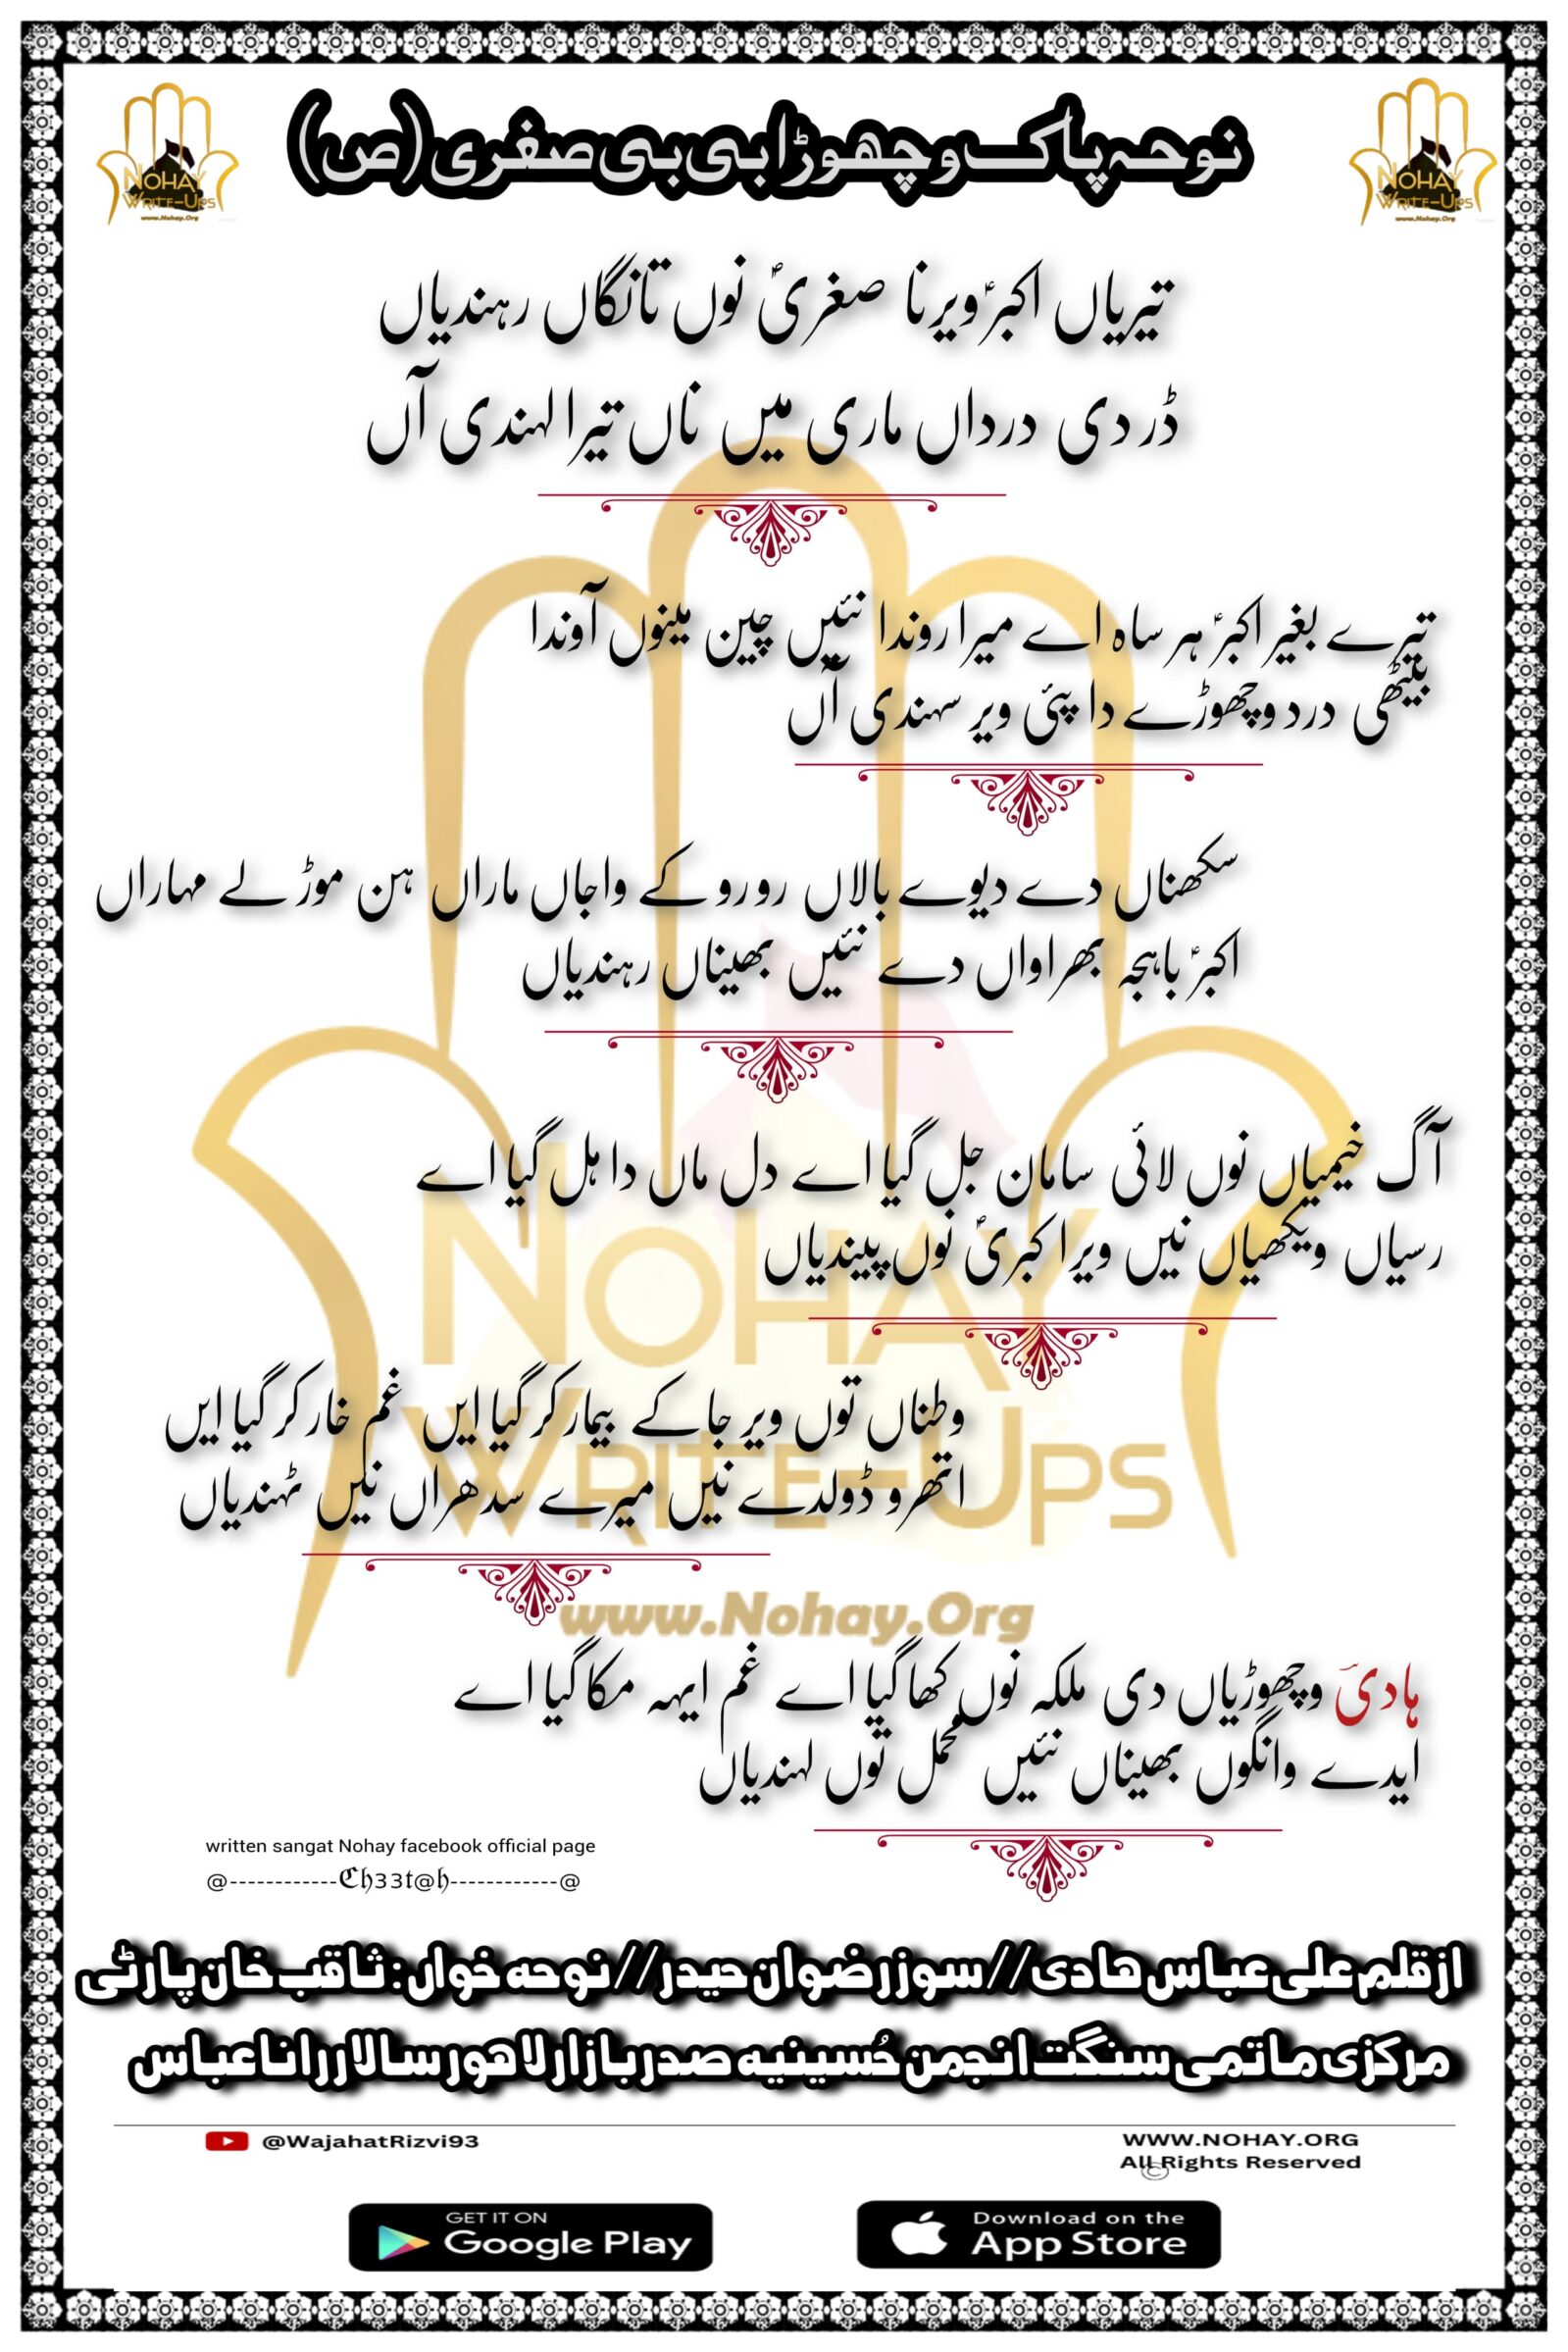 نوحہ پاک وچھوڑا بی بی صغری (ص)
NOHAY
WRITE-UPS
www.Nohay.Org
NOHAY
WRITE-UPS
www.Nohay.Org
تیریاں اکبرؑ ویرنا صغریؑ نوں تانگاں رہندیاں
ڈر دی درداں ماری میں ناں تیرا لہندی آں
تیرے بغیر اکبرؑ ہر ساہ اے میرا روندا نئیں چین مینوں آوندا
بیٹھی درد وچھوڑے دا پئی ویر سہندی آں
سکھناں دے دیوے بالاں رو رو کے واجاں ماراں ہن موڑ لے مہاراں
اکبرؑ باہجہ بھراواں دے نئیں بھیناں رہندیاں
آگ خیمیاں نوں لائی سامان جل گیا اے دل ماں دا ہل گیا اے
رسیاں ویکھیاں نیں ویرا کبریؑ نوں پیندیاں
NOHAY
WRITE-UPS
www.Nohay.Org
وطناں توں ویر جا کے بیمار کر گیا ایں غم خار کر گیا ایں
اتھرو ڈولدے نیں میرے سدھراں نیں ٹہندیاں
ہادیؔ وچھوڑیاں دی ملکہ نوں کھا گیا اے غم ایہہ مکا گیا اے
ایدے وانگوں بھیناں نئیں محمل توں لہندیاں
written sangat Nohay facebook official page
@------------ℭ𝔥33𝔱@𝔥------------@
ازقلم علی عباس ھادی // سوز رضوان حیدر // نوحہ خواں : ثاقب خان پارٹی
مرکزی ماتمی سنگت انجمن حُسینیہ صدر بازار لاھور سالار رانا عباس
@WajahatRizvi93
WWW.NOHAY.ORG
All Rights Reserved
©
GET IT ON
Google Play
Download on the
App Store